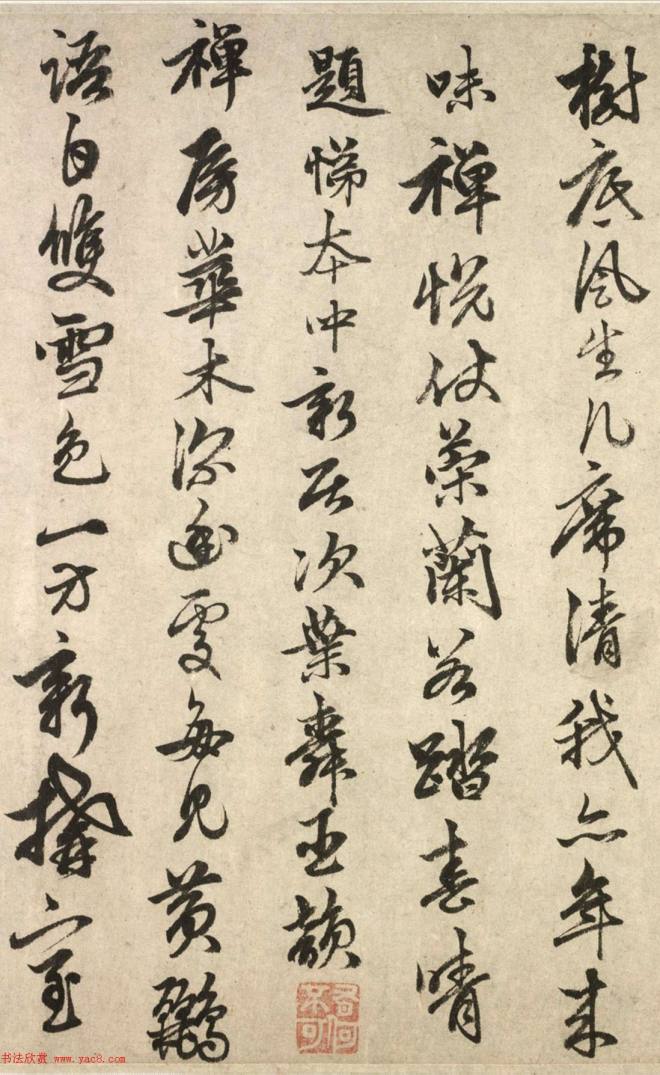 樹底風生几席清我亦年來
味禪悅仗藜蘭若踏春晴
題本中新居次葉舜玉韻
禪房華木深幽處每見黃鸝
語自雙雪色一方新搆室
书法欣赏 www.yac8.com